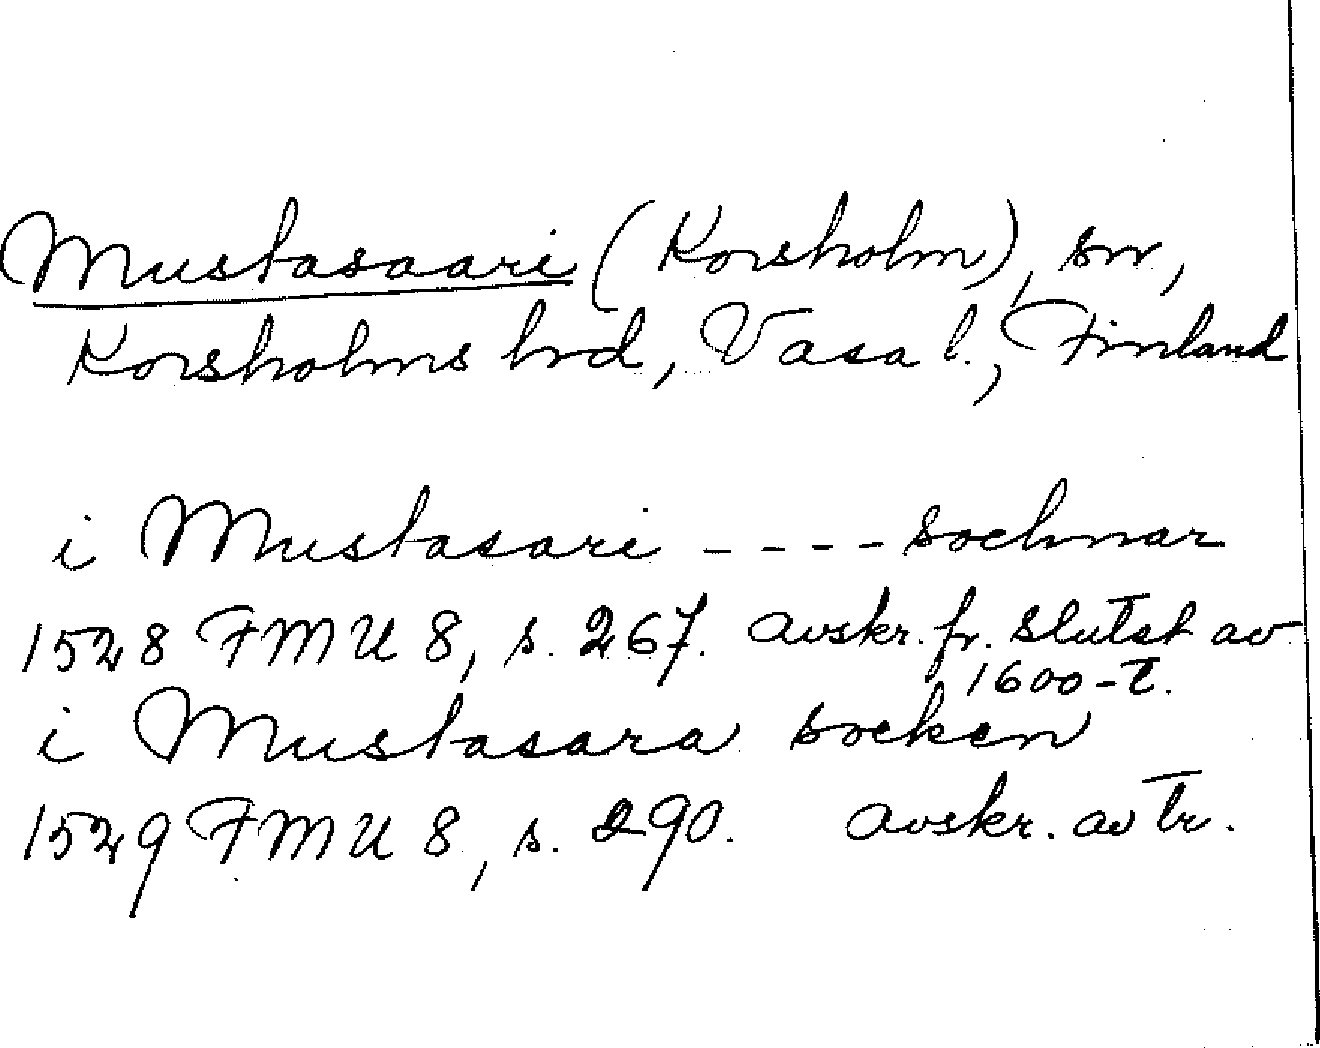 Mustasaari (Korsholm), sn,
Korsholms hd, Vasa l., Finland
i Mustasari - - - - sochnar
1528 FMU 8, s. 267. avskr. fr. slutet av
1600-t.
i Mustasara socken
1529 FMU 8, s. 290. avskr. av tr.